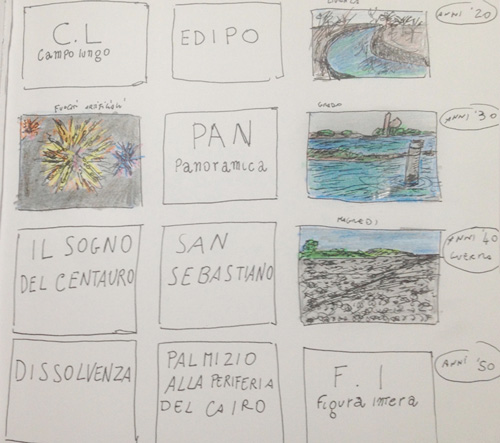 C.L
Campo lungo
EDIPO
ANNI '20
Fuochi artificiali
PAN
Panoramica
GRADO
ANNI '30
IL SOGNO
DEL CENTAURO
SAN
SEBASTIANO
ANNI '40
DISSOLVENZA
PALMIZIO
ALLA PERIFERIA
DEL CAIRO
F. I
Figura intera
ANNI '50